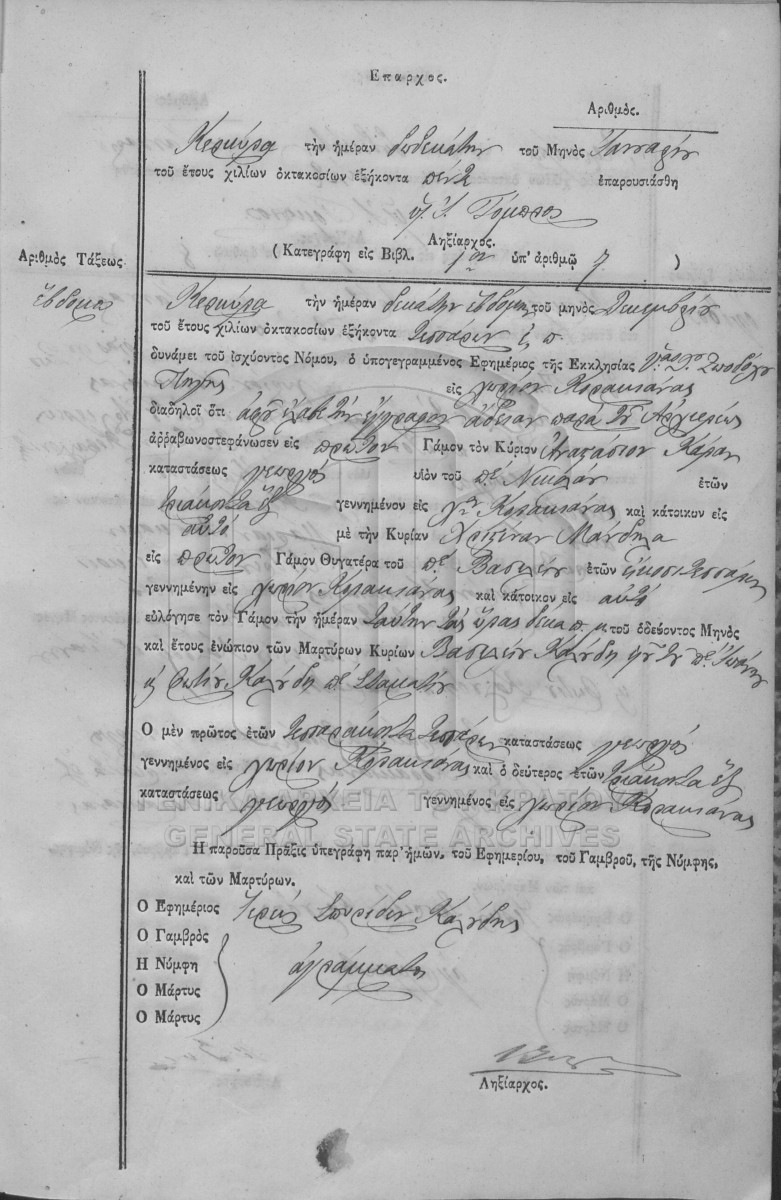 Επαρχος.
Αριθμὸς.
Κερκύρα τὴν ἡμέραν δωδεκάτην τοῦ Μηνὸς Ἰανουαρίου
τοῦ ἔτους χιλίων ὀκτακοσίων ἑξήκοντα πέντε ἐπαρουσιάσθη
Ληξίαρχος.
( Κατεγράφη εἰς Βιβλ. 1ον ὑπ' ἀριθμῷ 7 )
Αριθμὸς Τάξεως
ἕβδομος
Κερκύρα τὴν ἡμέραν δεκάτην ἑβδόμην τοῦ μηνὸς Δεκεμβρίου
τοῦ ἔτους χιλίων ὀκτακοσίων ἑξήκοντα τεσσάρων
δυνάμει τοῦ ἰσχύοντος Νόμου, ὁ ὑπογεγραμμένος Ἐφημέριος τῆς Ἐκκλησίας Ζωοδόχου
Πηγῆς εἰς χωρίον Κορακιάνας
διαδηλοῖ ὅτι ἀφοῦ ἔλαβε τὴν ἔγγραφον ἄδειαν παρὰ τοῦ Ἀρχιερέως
ἀῤῥαβωνοστεφάνωσεν εἰς πρῶτον Γάμον τὸν Κύριον Ἀναστάσιον
καταστάσεως γεωργός υἱὸν τοῦ πτέ Νικολάου ἐτῶν
τριάκοντα ἕξ γεννημένον εἰς χωρίον Κορακιάνας καὶ κάτοικον εἰς
αὐτό μὲ τὴν Κυρίαν Χριστίναν Μάνδηλα
εἰς πρῶτον Γάμον Θυγατέρα τοῦ πτέ Βασιλείου ἐτῶν εἴκοσι τεσσάρων
γεννημένην εἰς χωρίον Κορακιάνας καὶ κάτοικον εἰς αὐτό
εὐλόγησε τὸν Γάμον τὴν ἡμέραν ταύτην τὰς ὥρας δέκα π. μ. τοῦ ὁδεύοντος Μηνὸς
καὶ ἔτους ἐνώπιον τῶν Μαρτύρων Κυρίων Βασιλείου Καλούδη τοῦ πτέ Ἰωάννου
Φωτίου Καλούδη πτέ Σταματίου
Ο μὲν πρῶτος ἐτῶν τεσσαράκοντα τεσσάρων καταστάσεως γεωργός
γεννημένος εἰς χωρίον Κορακιάνας καὶ ὁ δεύτερος ἐτῶν τριάκοντα ἕξ
καταστάσεως γεωργός γεννημένος εἰς χωρίον Κορακιάνας
ΓΕΝΙΚΑ ΑΡΧΕΙΑ ΤΟΥ ΚΡΑΤΟΥΣ
GENERAL STATE ARCHIVES
Η παροῦσα Πρᾶξις ὑπεγράφη παρ' ἡμῶν, τοῦ Ἐφημερίου, τοῦ Γαμβροῦ, τῆς Νύμφης,
καὶ τῶν Μαρτύρων.
Ο Ἐφημέριος Ἱερεύς Σπυρίδων Καλούδης
Ο Γαμβρὸς
Η Νύμφη ἀγράμματοι
Ο Μάρτυς
Ο Μάρτυς
Ληξίαρχος.